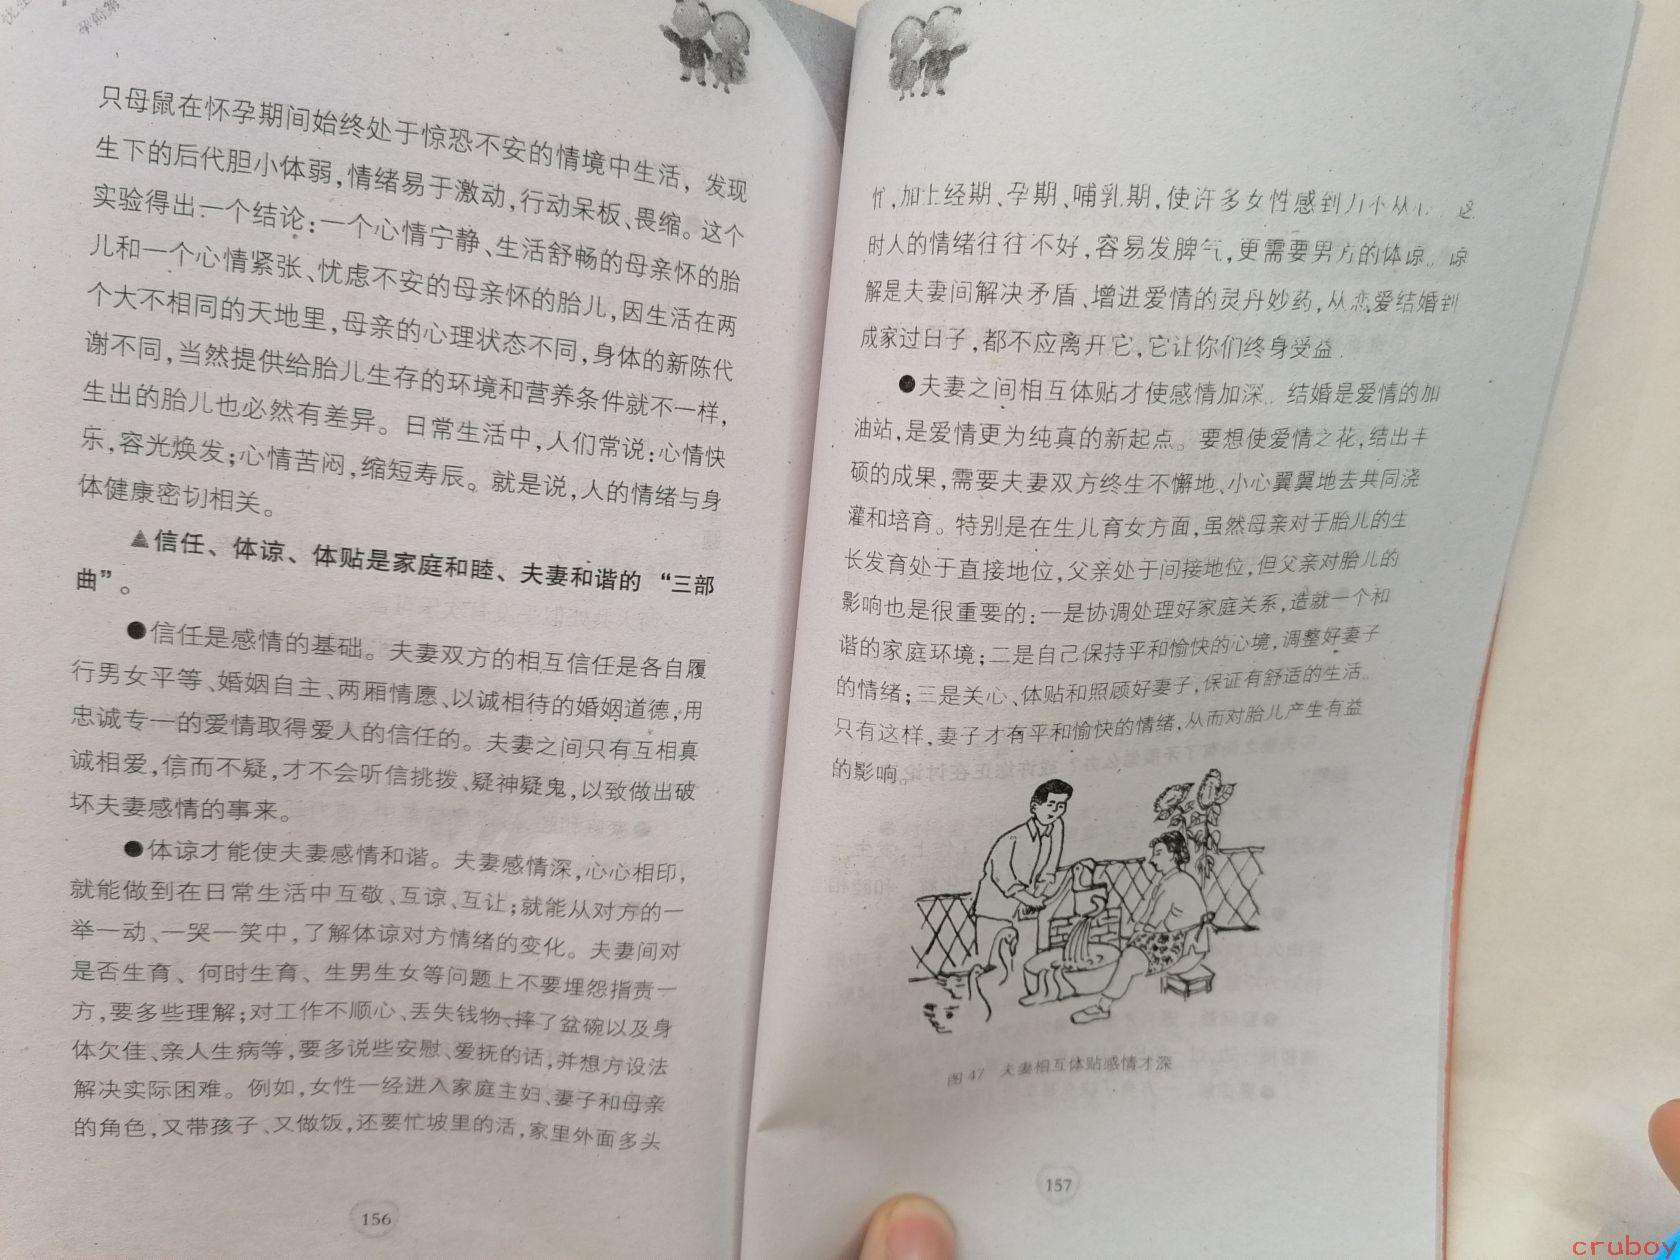 只母鼠在怀孕期间始终处于惊恐不安的情境中生活，发现
生下的后代胆小体弱，情绪易于激动，行动呆板、畏缩。这个
实验得出一个结论：一个心情宁静、生活舒畅的母亲怀的胎
儿和一个心情紧张、忧虑不安的母亲怀的胎儿，因生活在两
个大不相同的天地里，母亲的心理状态不同，身体的新陈代
谢不同，当然提供给胎儿生存的环境和营养条件就不一样，
生出的胎儿也必然有差异。日常生活中，人们常说：心情快
乐，容光焕发；心情苦闷，缩短寿辰。就是说，人的情绪与身
体健康密切相关。
▲信任、体谅、体贴是家庭和睦、夫妻和谐的“三部
曲”。
●信任是感情的基础。夫妻双方的相互信任是各自履
行男女平等、婚姻自主、两厢情愿、以诚相待的婚姻道德，用
忠诚专一的爱情取得爱人的信任的。夫妻之间只有互相真
诚相爱，信而不疑，才不会听信挑拨、疑神疑鬼，以致做出破
坏夫妻感情的事来。
●体谅才能使夫妻感情和谐。夫妻感情深，心心相印，
就能做到在日常生活中互敬、互谅、互让；就能从对方的一
举一动、一哭一笑中，了解体谅对方情绪的变化。夫妻间对
是否生育、何时生育、生男生女等问题上不要埋怨指责一
方，要多些理解；对工作不顺心、丢失钱物、摔了盆碗以及身
体欠佳、亲人生病等，要多说些安慰、爱抚的话，并想方设法
解决实际困难。例如，女性一经进入家庭主妇、妻子和母亲
的角色，又带孩子、又做饭，还要忙坡里的活，家里外面多头
156
忙，加上经期、孕期、哺乳期，使许多女性感到力不从心。这
时人的情绪往往不好，容易发脾气，更需要男方的体谅。谅
解是夫妻间解决矛盾、增进爱情的灵丹妙药，从恋爱结婚到
成家过日子，都不应离开它，它让你们终身受益。
●夫妻之间相互体贴才使感情加深。结婚是爱情的加
油站，是爱情更为纯真的新起点。要想使爱情之花，结出丰
硕的成果，需要夫妻双方终生不懈地、小心翼翼地去共同浇
灌和培育。特别是在生儿育女方面，虽然母亲对于胎儿的生
长发育处于直接地位，父亲处于间接地位，但父亲对胎儿的
影响也是很重要的：一是协调处理好家庭关系，造就一个和
谐的家庭环境；二是自己保持平和愉快的心境，调整好妻子
的情绪；三是关心、体贴和照顾好妻子，保证有舒适的生活。
只有这样，妻子才有平和愉快的情绪，从而对胎儿产生有益
的影响。
图47 夫妻相互体贴感情才深
157
cruboy